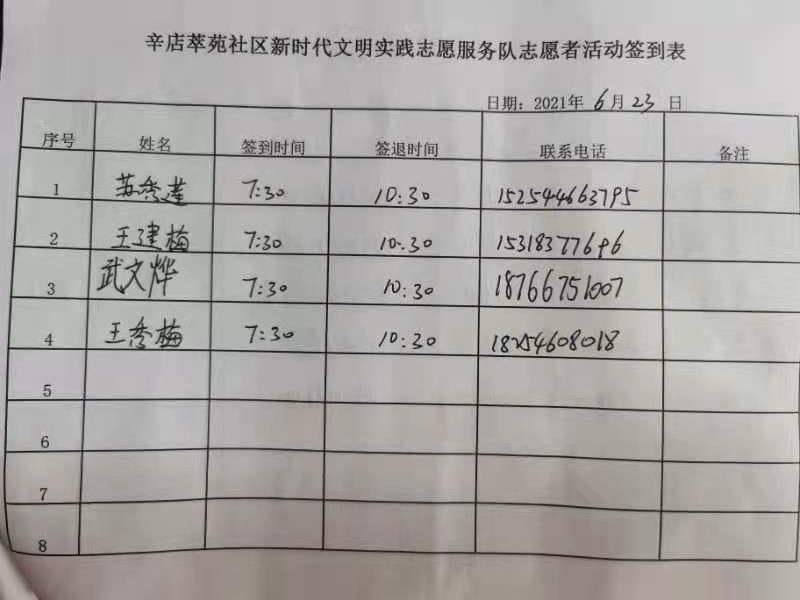 辛店萃苑社区新时代文明实践志愿服务队志愿者活动签到表
日期：2021年 6月 23 日
序号 姓名 签到时间 签退时间 联系电话 备注
1 苏秀莲 7:30 10:30 152544663795
2 王建梅 7:30 10:30 15318377696
3 武文烨 7:30 10:30 18766751007
4 王秀梅 7:30 10:30 18254608018
5
6
7
8